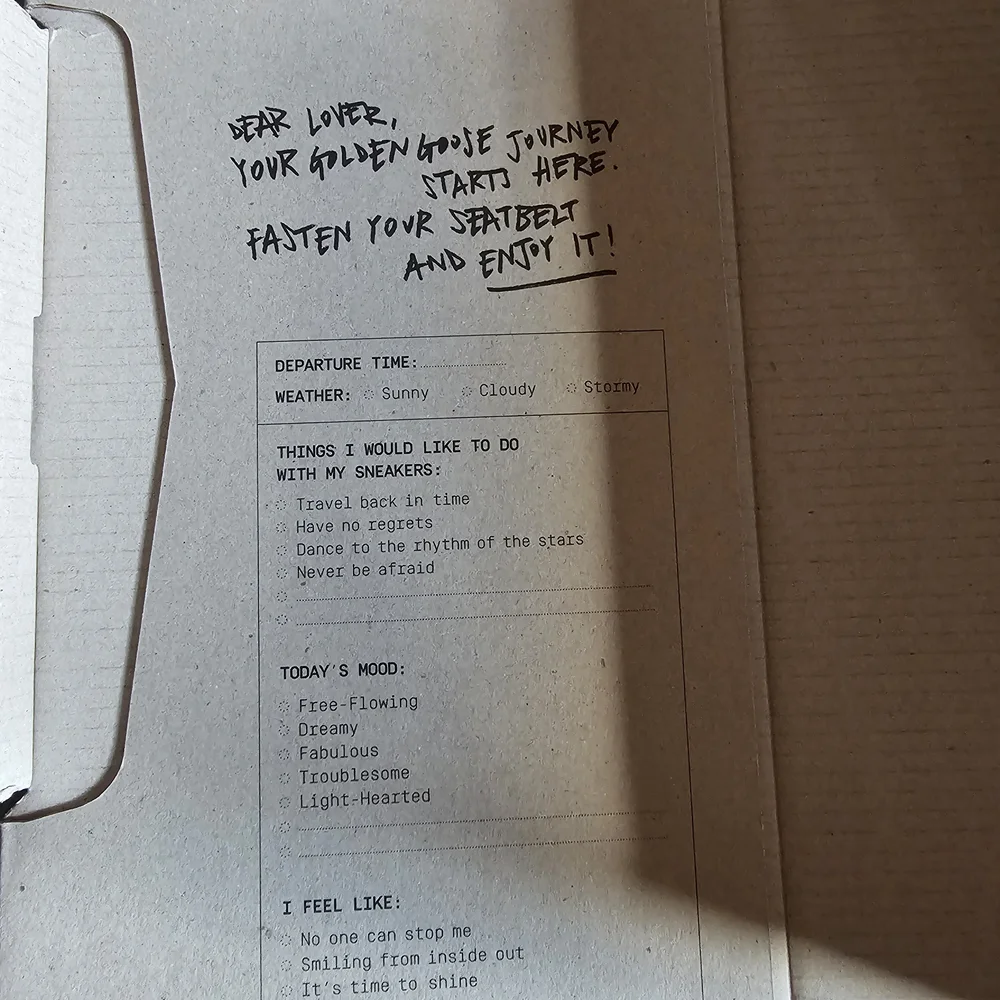 DEAR LOVER,
YOUR GOLDEN GOOSE JOURNEY
STARTS HERE.
FASTEN YOUR SEATBELT
AND ENJOY IT!
DEPARTURE TIME:
WEATHER: Sunny Cloudy Stormy
THINGS I WOULD LIKE TO DO
WITH MY SNEAKERS:
Travel back in time
Have no regrets
Dance to the rhythm of the stars
Never be afraid
TODAY'S MOOD:
Free-Flowing
Dreamy
Fabulous
Troublesome
Light-Hearted
I FEEL LIKE:
No one can stop me
Smiling from inside out
It's time to shine